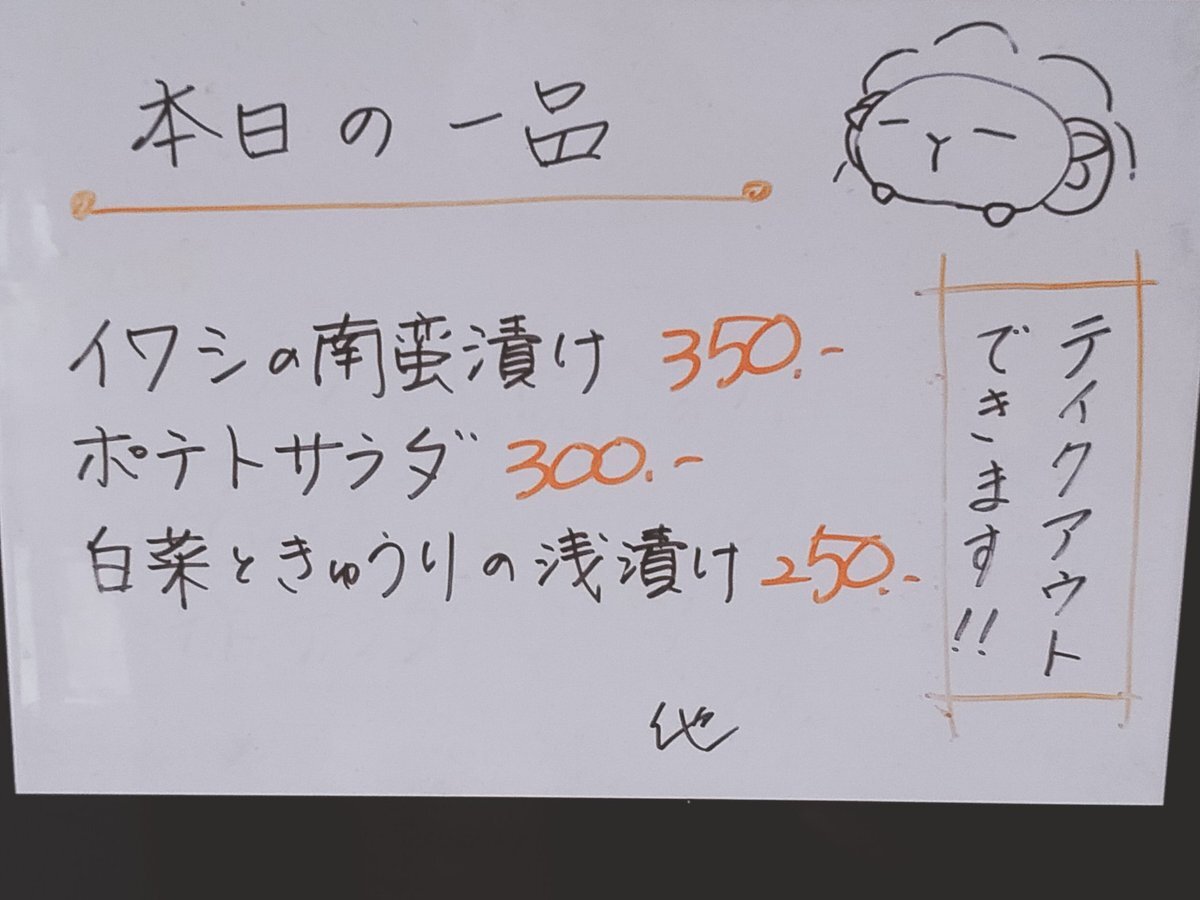 本日の一品
イワシの南蛮漬け 350.-
ポテトサラダ 300.-
白菜ときゅうりの浅漬け 250.-
他
ティクアウト
できます!!